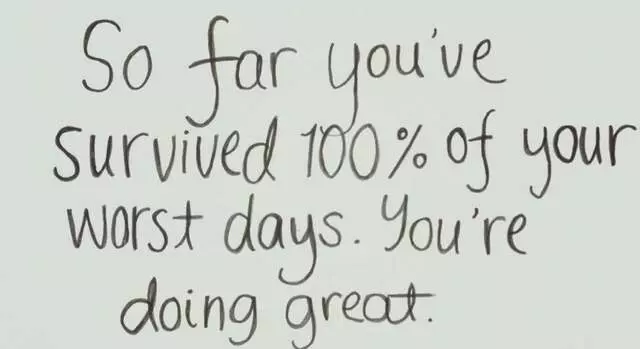 So far you've
survived 100% of your
worst days. You're
doing great.